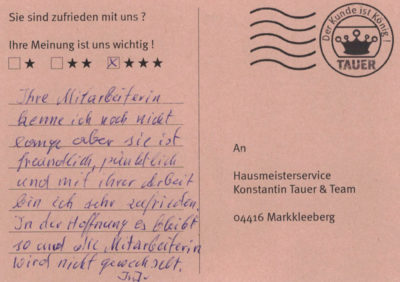 Sie sind zufrieden mit uns ?
Ihre Meinung ist uns wichtig !
Ihre Mitarbeiterin
kenne ich noch nicht
lange aber sie ist
freundlich, pünktlich
und mit ihrer Arbeit
bin ich sehr zufrieden.
In der Hoffnung es bleibt
so und die Mitarbeiterin
wird nicht gewechselt.
Der Kunde ist König !
TAUER
An
Hausmeisterservice
Konstantin Tauer & Team
04416 Markkleeberg